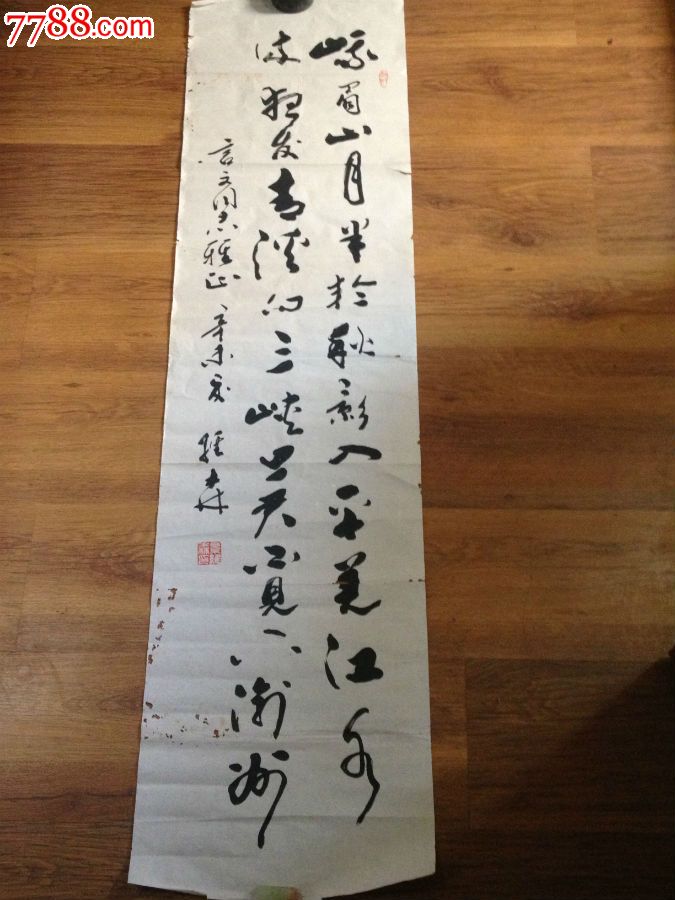 7788.com
中国收藏热线
峨眉山月半轮秋影入平羌江水
流夜发青溪向三峡思君不见下渝州
言文同志雅正 辛未夏